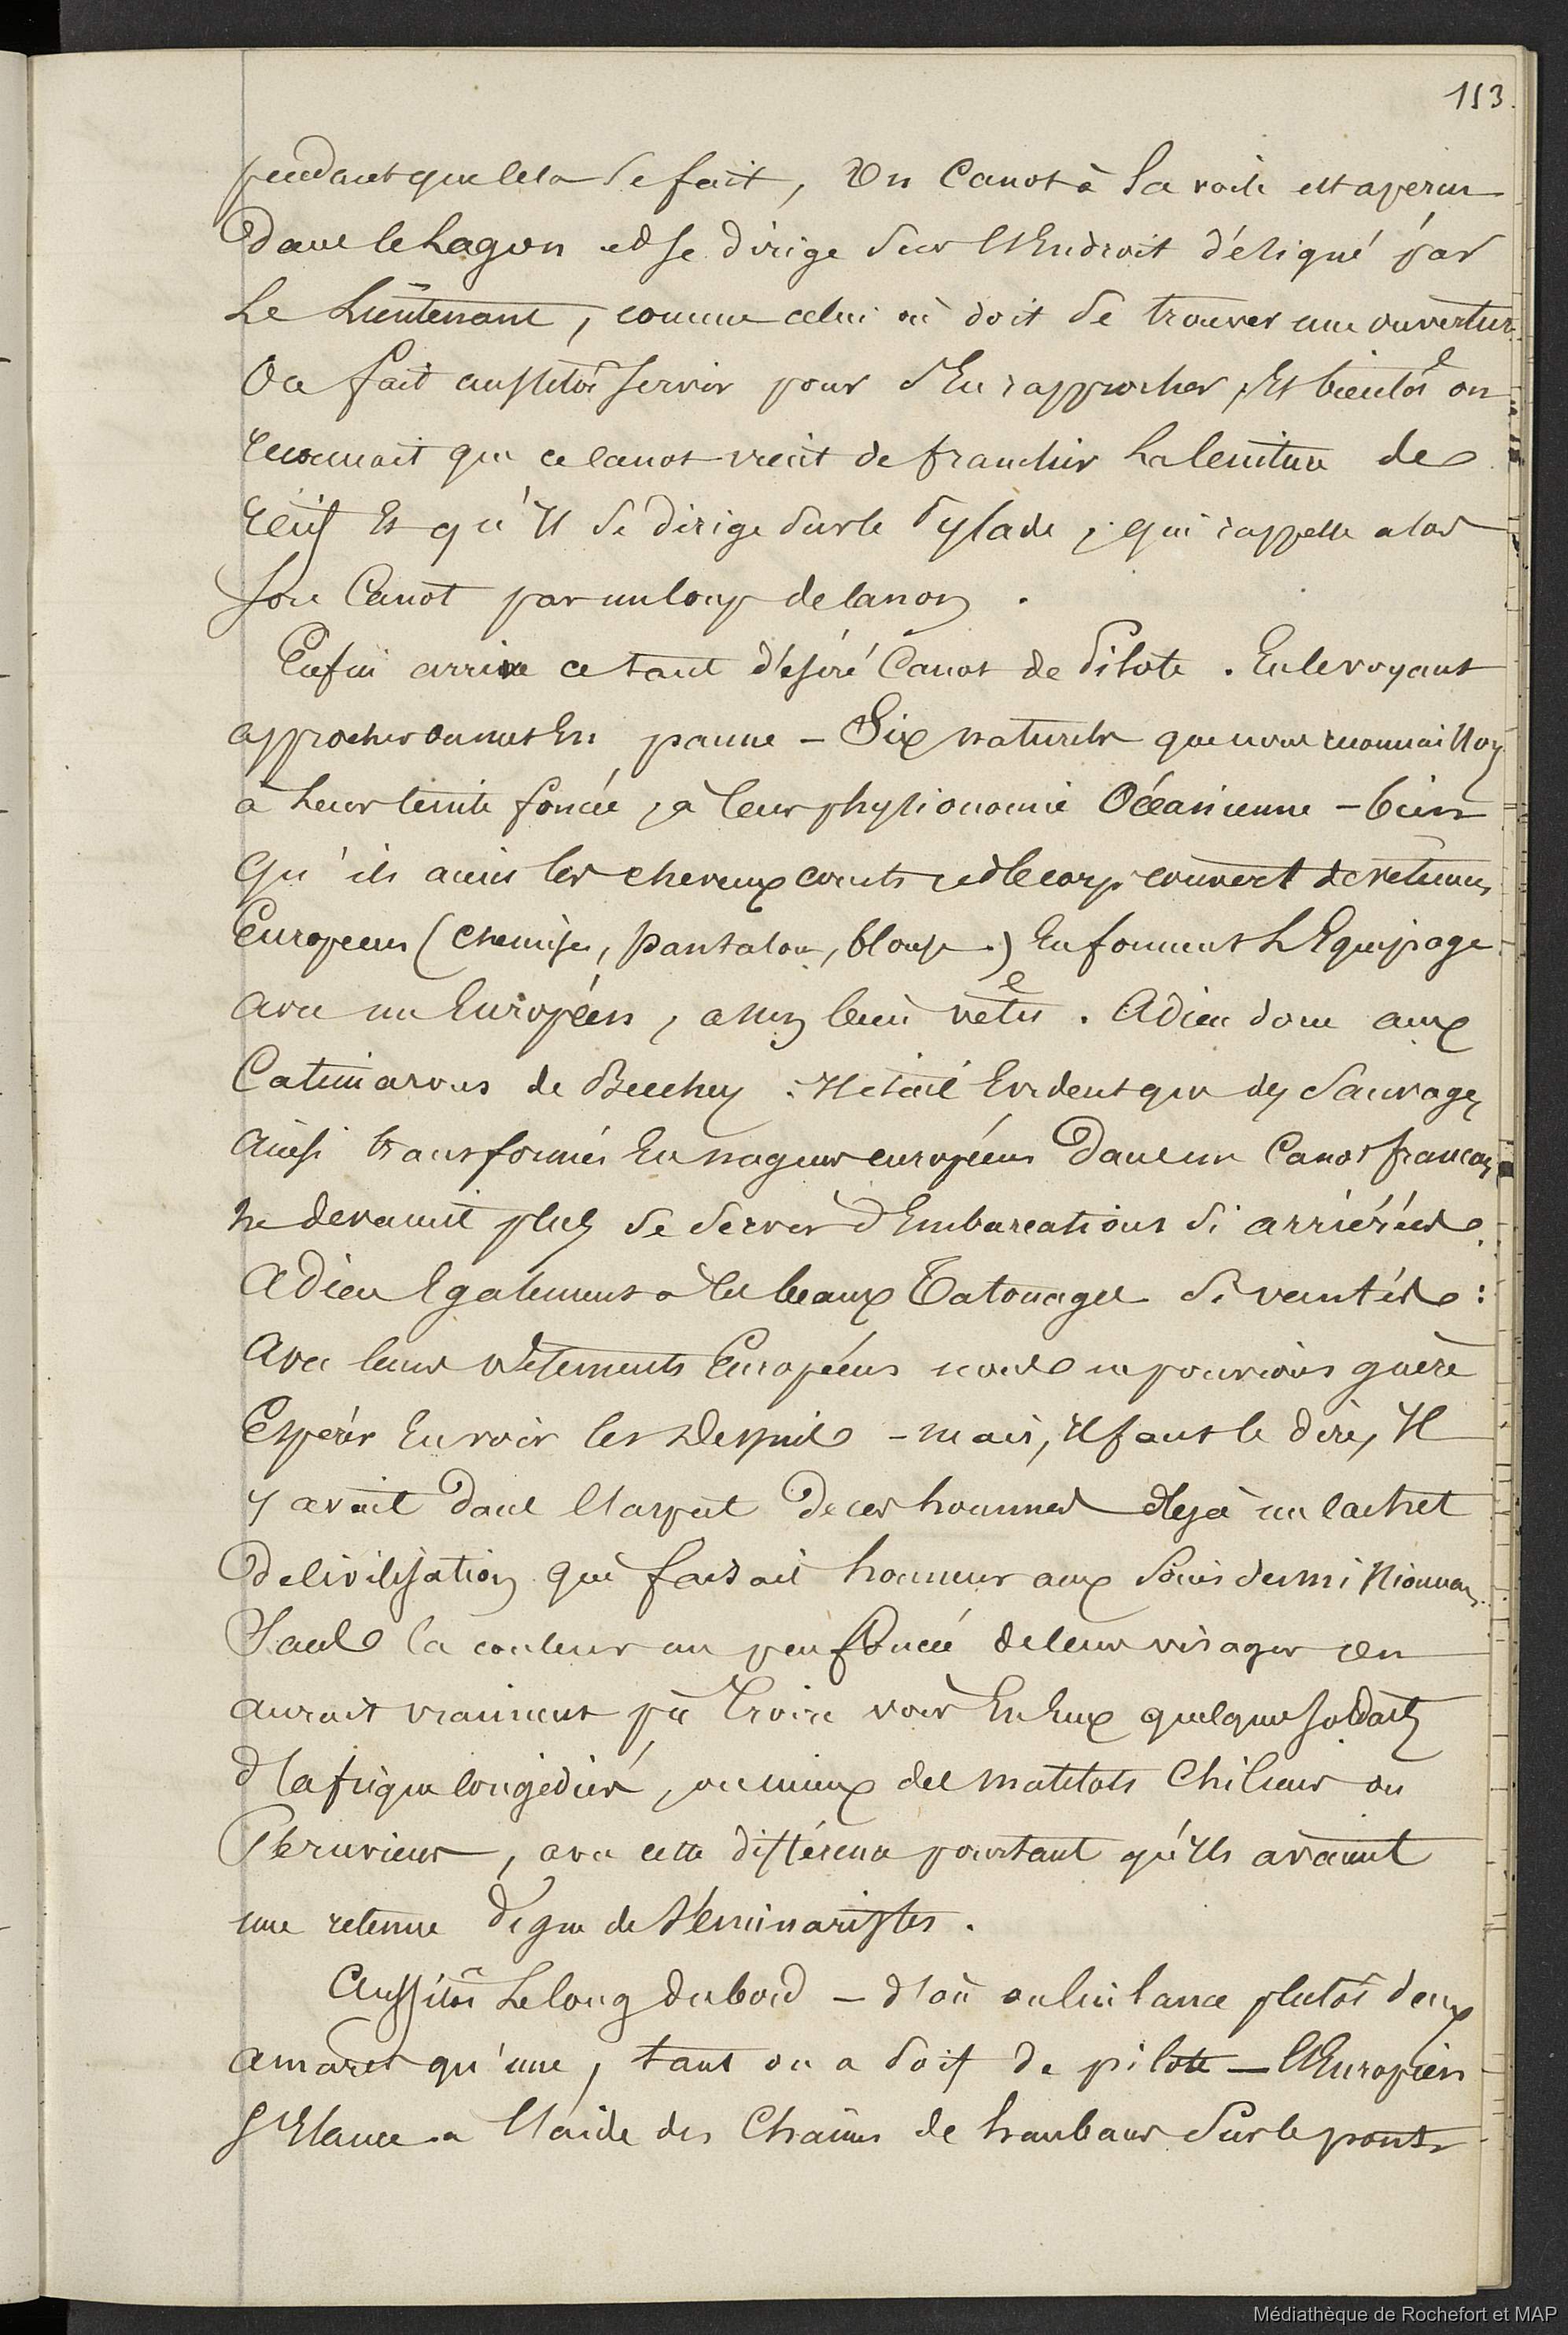 153.
pendant que cela se fait, Un Canot à la voile est aperçu
Dans le Lagon et se dirige sur l'Endroit désigné par
Le Lieutenant, comme celui où doit se trouver une ouverture
On fait aussitôt servir pour s'En rapprocher, Et bientôt on
reconnait que ce canot vient de franchir La Ceinture de
récif Et qu'Il se dirige sur le Pylade, qui rappelle alors
son Canot par un coup de canon.
Enfin arrive ce tant désiré Canot de Pilote. En le voyant
approcher on met En panne – Six naturels que nous reconnaissons
à Leur teinte foncée, à leur physionomie Océanienne – bien
Qu'ils aient les cheveux courts et le corps couvert de vêtemens
Européens (Chemise, pantalon, blouse.) En forment L'Equipage
avec un Européen, assez bien vêtu. Adieu donc aux
Catimarons de Beechey : Il était Evident que des Sauvages
Ainsi transformés En nageurs européens Dans un Canot français
Ne devaient plus se servir d'Embarcations si arriérées.
Adieu Egalement à ces beaux Tatouages si vantés :
Avec leurs vêtements Européens nous ne pouvions guère
Espérer En voir les dessins – mais, Il faut le dire, Il
y avait dans l'aspect De ces hommes déjà un cachet
De Civilisation qui faisait honneur aux Soins des missionnaires.
Sauf la couleur un peu foncée de leurs visages on
aurait vraiment pû Croire voir En Eux quelques soldats
d'afrique congédiés, ou mieux des matelots Chiliens ou
Péruviens, avec cette différence pourtant qu'Ils avaient
une retenue digne de Séminaristes.
Aussitôt Le long du bord – d'où on lui lance plutôt deux
amarres qu'une, tant on a soif de pilote – l'Européen
s'Elance à l'aide des Chaînes de haubans Sur le pont